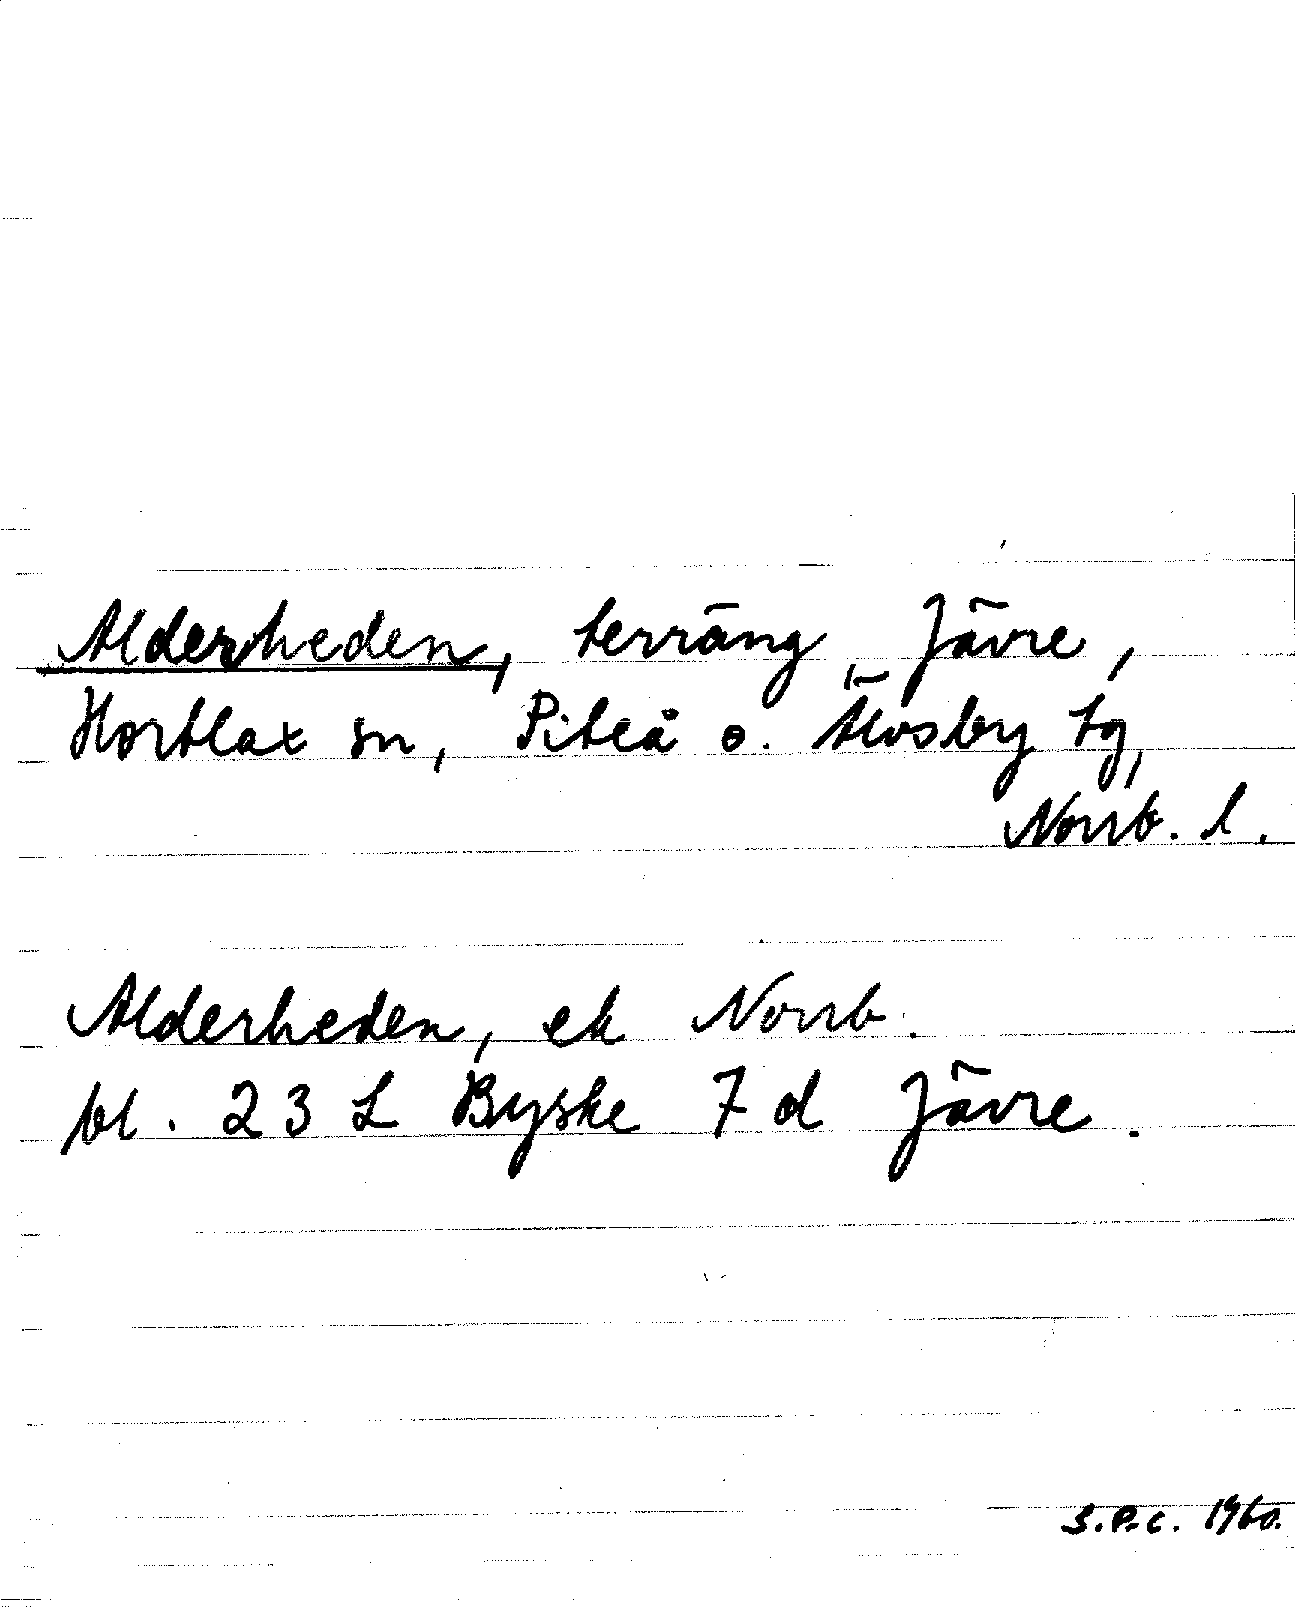 Alderheden, terräng, Jävre,
Hortlax sn, Piteå o. Älvsby tg,
Norrb. l.
Alderheden, ek Norrb.
bl. 23 L Byske 7 d Jävre.
S.P.C. 1960.